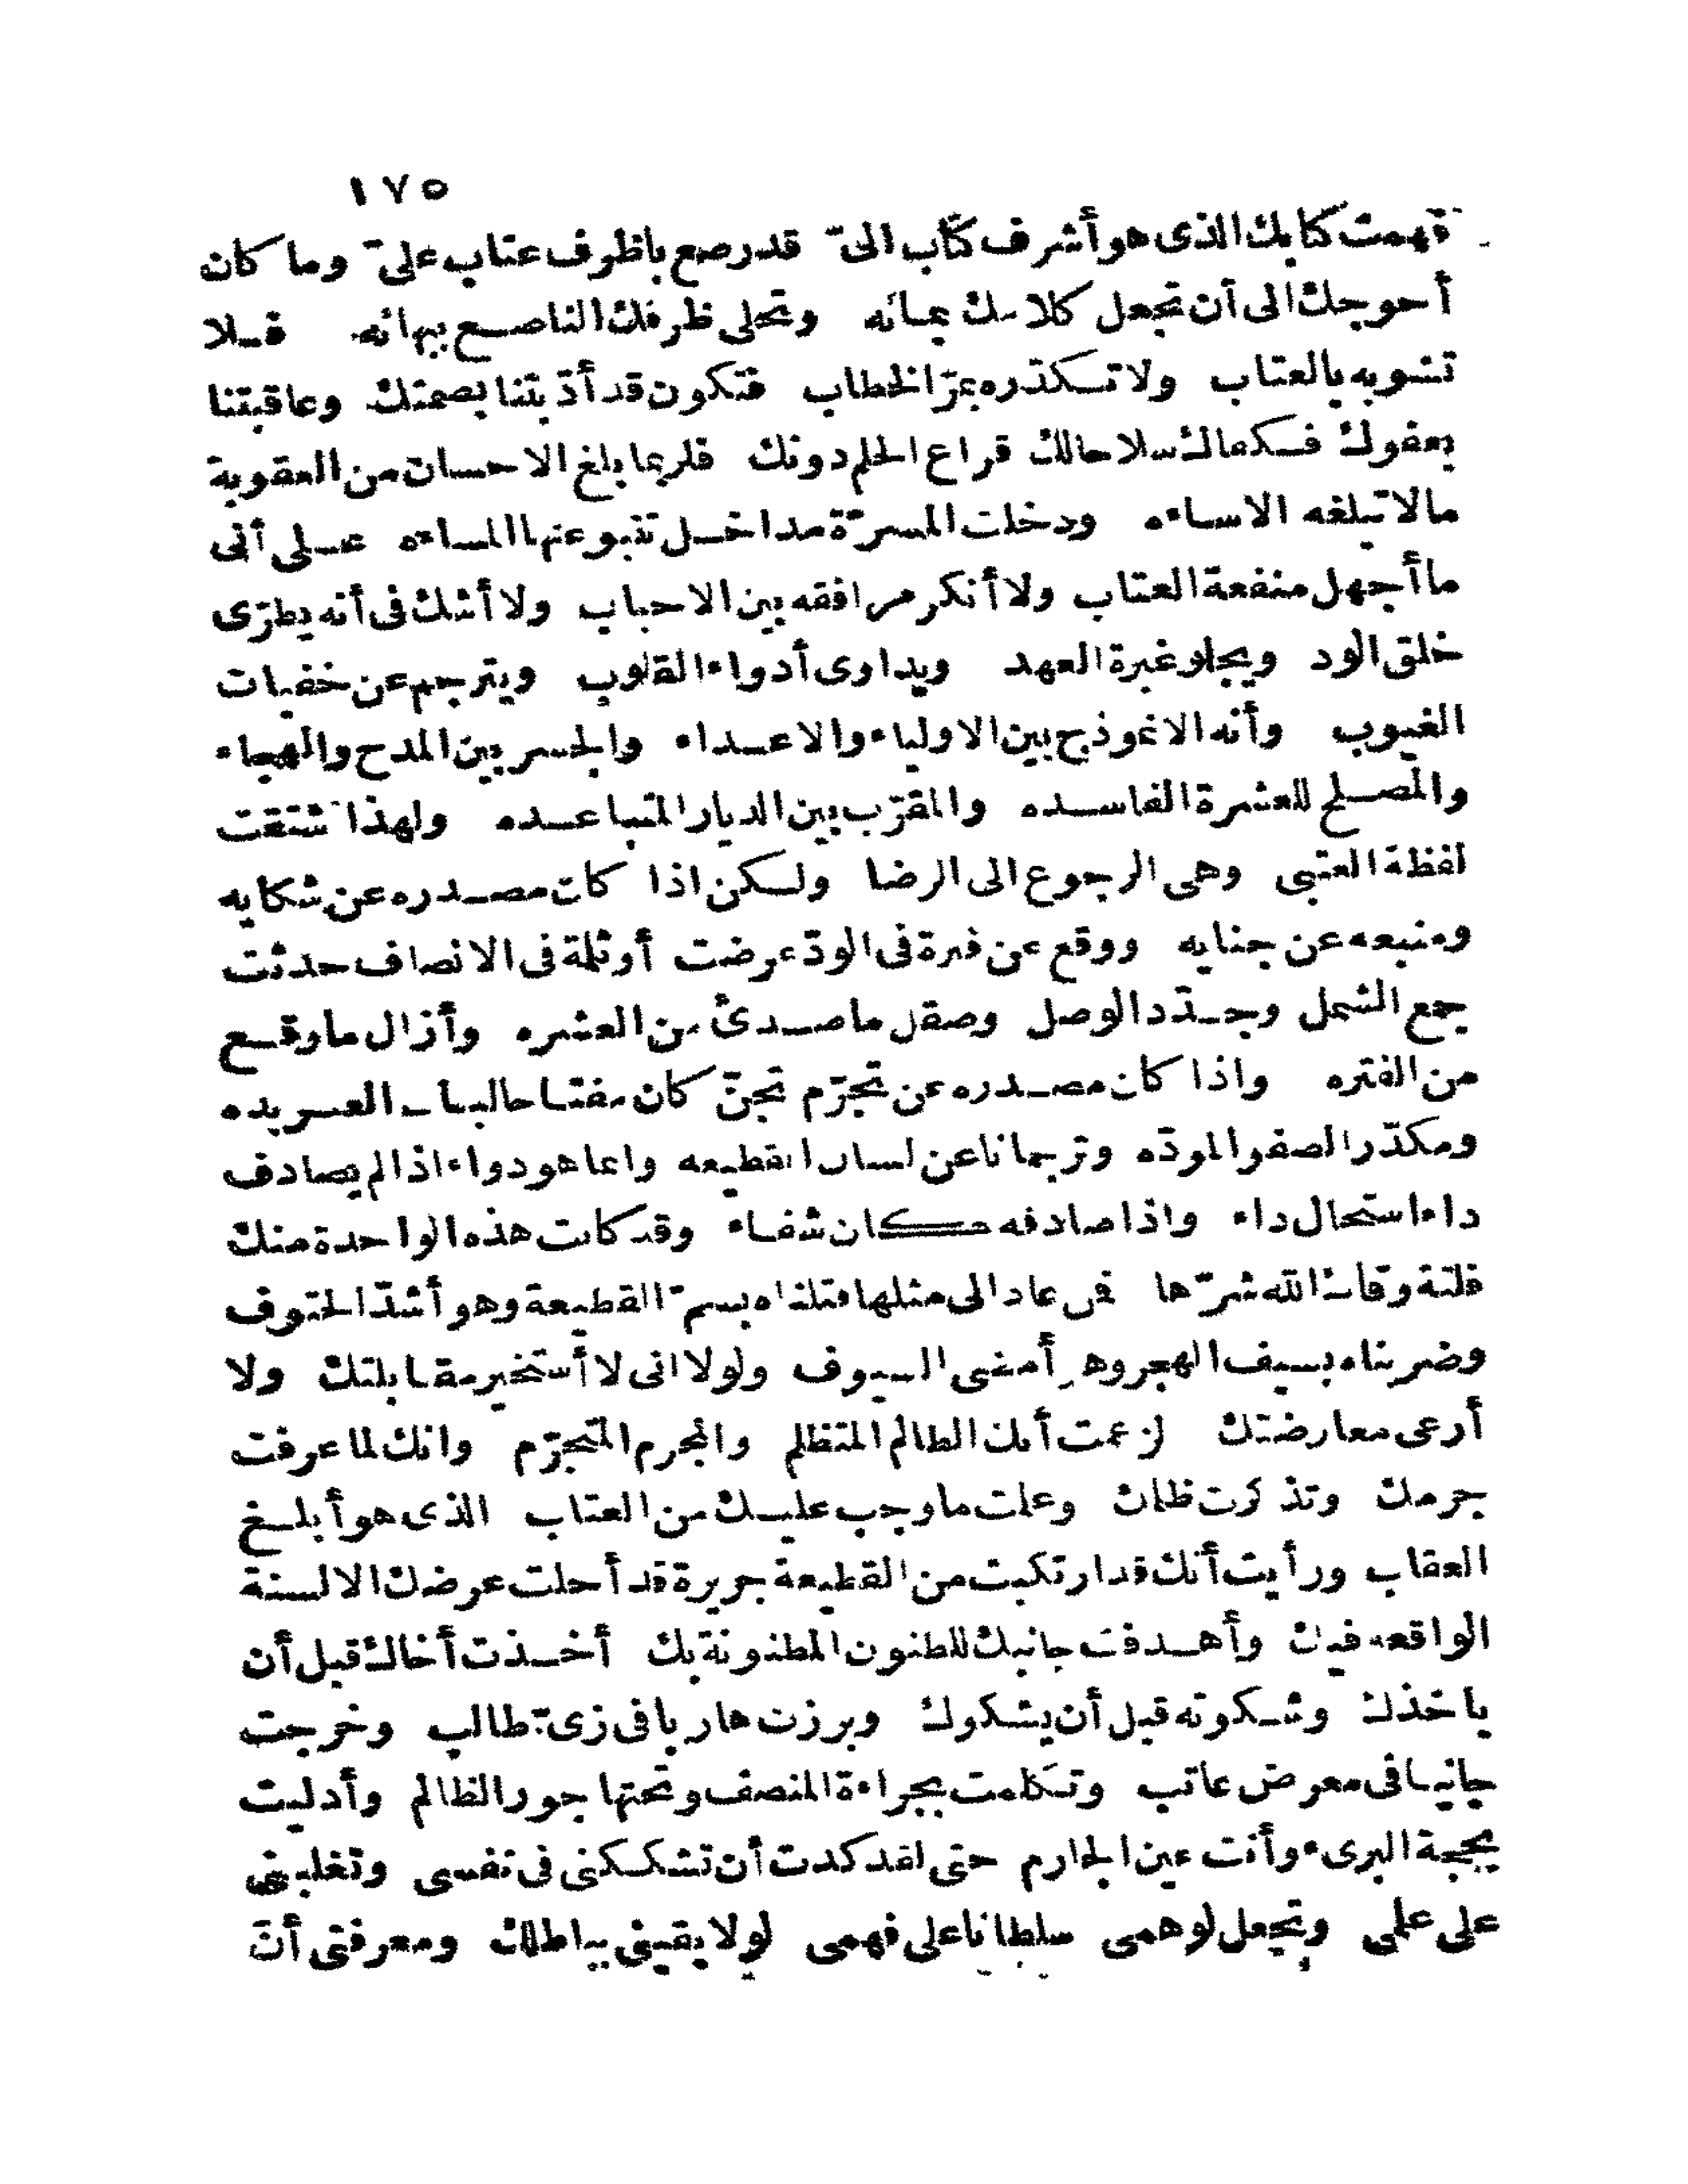 ١٧٥
فهمت كتابك الذى هو أشرف كتاب الىّ قد رصع باظرف عتاب علىّ وما كان
أحوجك الى أن تجعل كلامك بمائه وتحلى ظرفك الناصع ببهائه فلا
تشوبه بالعتاب ولا تكدّره بمرّ الخطاب فتكون قد أدّبتنا بصمتك وعاقبتنا
بعفوك فكفاك سلاحالك قراع الحلم دونك فلربما بلغ الاحسان من العقوبة
مالا تبلغه الاساءه ودخلت المسرّة مداخل تنبو عنها المساءه على أنى
ما أجهل منفعة العتاب ولا أنكر مرافقه بين الاحباب ولا أشك فى أنه يطرّى
خلق الود ويجلو غبرة العهد ويداوى أدواء القلوب ويترجم عن خفيات
الغيوب وأنه الانموذج بين الاولياء والاعداء والجسر بين المدح والهجاء
والمصلح للعشرة الفاسده والمقرّب بين الديار المتباعده ولهذا شتقت
لفظة العتبى وهى الرجوع الى الرضا ولكن اذا كان مصدره عن شكايه
ومنبعه عن جنايه ووقع عن فترة فى الودّ عرضت أو ثلمة فى الانصاف حدثت
جمع الشمل وجدّد الوصل وصقل ما صدئ من العشره وأزال ما وقع
من الفتره واذا كان مصدره عن تجرّم تجنّ كان مفتاحا لباب العربده
ومكدّر الصفو المودّه وترجمانا عن لسان القطيعه وانما هو دواء اذا لم يصادف
داء استحال داء واذا صادفه كان شفاء وقد كانت هذه الواحدة منك
فلتة وقانا الله شرّها فمن عاد الى مثلها قتلناه بسمّ القطيعة وهو أشدّ الحتوف
وضربناه بسيف الهجر وهو أمضى السيوف ولولا انى لا أستخير مقابلتك ولا
أرعى معارضتك لزعمت أنك الظالم المتظلم والمجرم المتجرّم وانك لما عرفت
جرمك وتذكرت ظلمك وعلمت ما وجب عليك من العتاب الذى هو أبلغ
العقاب ورأيت أنك قد ارتكبت من القطيعة جريرة قد أحلت عرضك الالسنة
الواقعه فيك وأهدفت جانبك للظنون المظنونة بك أخذت أخاك قبل أن
ياخذك وشكوته قبل أن يشكوك وبرزت هاربا فى زىّ طالب وخرجت
جانيا فى معرض عاتب وتكلمت بجراءة المنصف وتحتها جور الظالم وأدليت
بحجة البرىء وأنت عين الجارم حتى لقد كدت أن تشككنى فى نفسى وتغلبنى
على علمى وتجعل لوهمى سلطانا على فهمى لولا يقينى بباطلك ومعرفتى أنّ